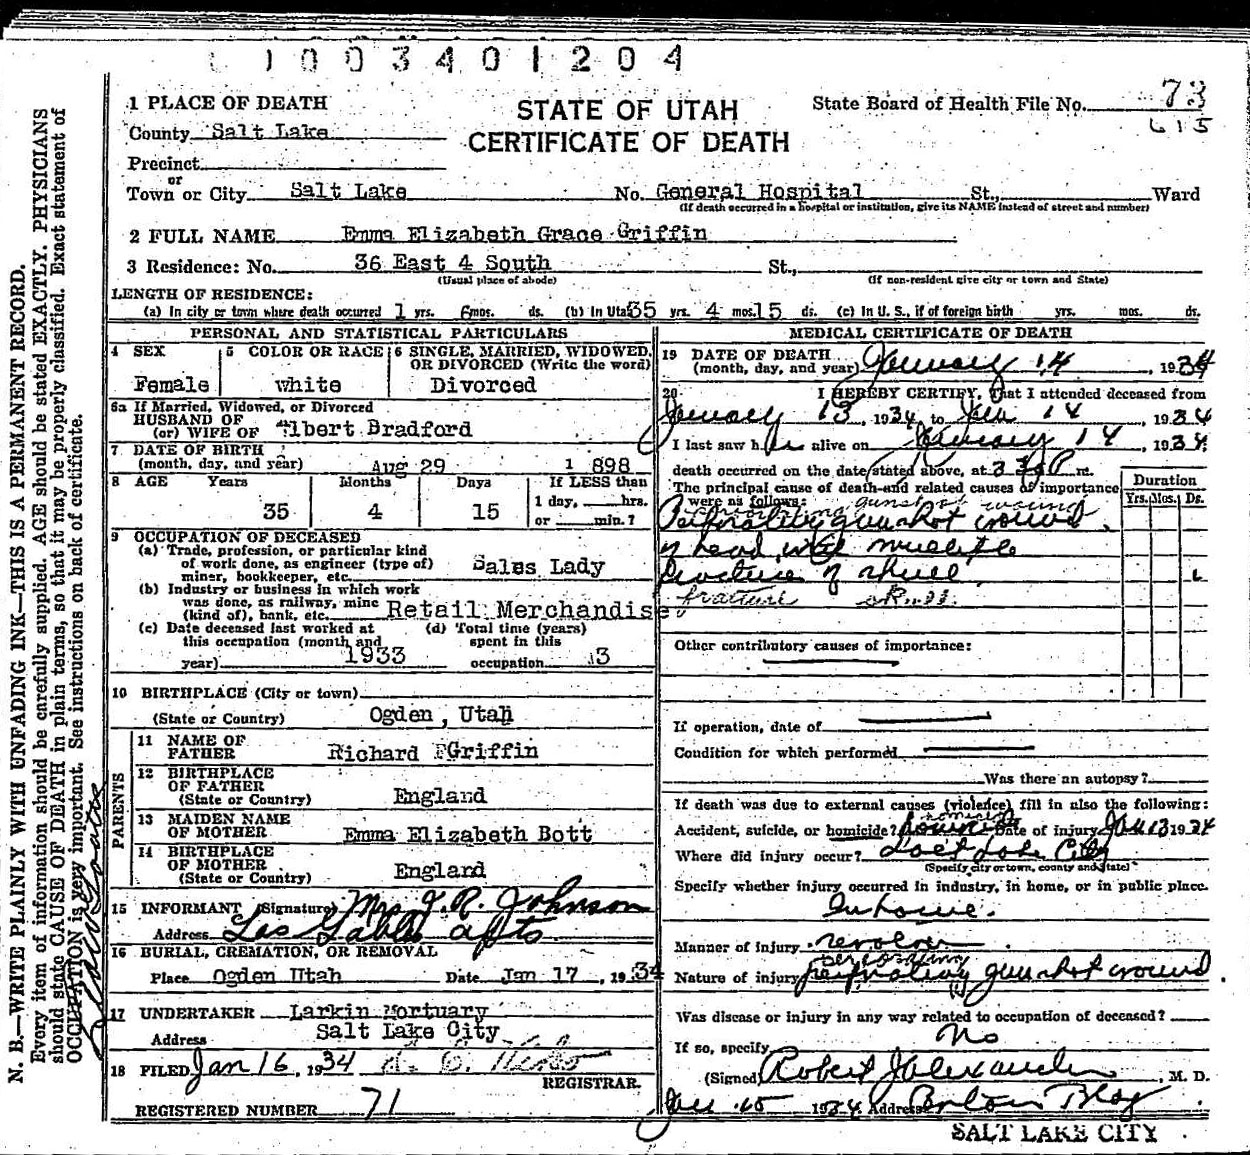 1003401204
1 PLACE OF DEATH
STATE OF UTAH
CERTIFICATE OF DEATH
State Board of Health File No. 73
615
County Salt Lake
Precinct
or
Town or City Salt Lake No. General Hospital St., Ward
(If death occurred in a hospital or institution, give its NAME instead of street and number)
2 FULL NAME Emma Elizabeth Grace Griffin
3 Residence: No. 36 East 4 South St.,
(Usual place of abode) (If non-resident give city or town and State)
LENGTH OF RESIDENCE:
(a) In city or town where death occurred 1 yrs. 6 mos. ds. (b) In Utah 35 yrs. 4 mos. 15 ds. (c) In U. S., if of foreign birth yrs. mos. ds.
PERSONAL AND STATISTICAL PARTICULARS
4 SEX
Female
5 COLOR OR RACE
white
6 SINGLE, MARRIED, WIDOWED, OR DIVORCED (Write the word)
Divorced
6a If Married, Widowed, or Divorced
HUSBAND OF
(or) WIFE OF Albert Bradford
7 DATE OF BIRTH
(month, day, and year) Aug 29 1 898
8 AGE Years Months Days If LESS than
35 4 15 1 day, hrs.
or min.?
9 OCCUPATION OF DECEASED
(a) Trade, profession, or particular kind
of work done, as engineer (type of)
miner, bookkeeper, etc. Sales Lady
(b) Industry or business in which work
was done, as railway, mine
(kind of), bank, etc. Retail Merchandise
(c) Date deceased last worked at
this occupation (month and
year) 1933
(d) Total time (years)
spent in this
occupation 13
10 BIRTHPLACE (City or town)
(State or Country) Ogden, Utah
PARENTS
11 NAME OF
FATHER Richard F Griffin
12 BIRTHPLACE
OF FATHER
(State or Country) England
13 MAIDEN NAME
OF MOTHER Emma Elizabeth Bott
14 BIRTHPLACE
OF MOTHER
(State or Country) England
15 INFORMANT (Signature) Mrs J. R. Johnson
Address Las Gables apts
16 BURIAL, CREMATION, OR REMOVAL
Place Ogden Utah Date Jan 17, 1934
17 UNDERTAKER Larkin Mortuary
Address Salt Lake City
18 FILED Jan 16, 1934
REGISTRAR.
REGISTERED NUMBER 71
MEDICAL CERTIFICATE OF DEATH
19 DATE OF DEATH
(month, day, and year) January 14, 1934
20 I HEREBY CERTIFY, that I attended deceased from
January 13 1934 to Jan 14, 1934
I last saw her alive on January 14, 1934
death occurred on the date stated above, at 3 P m.
The principal cause of death and related causes of importance
were as follows: Duration
Yrs. Mos. Ds.
perforating gunshot wound
Perforating gunshot wound
of head with multiple
fracture of skull.
fracture skull
Other contributory causes of importance:
If operation, date of
Condition for which performed
Was there an autopsy?
If death was due to external causes (violence) fill in also the following:
homicide
Accident, suicide, or homicide? homicide Date of injury Jan 13 1934
Where did injury occur? Salt Lake City
(Specify city or town, county and State)
Specify whether injury occurred in industry, in home, or in public place.
In home.
Manner of injury revolver
perforating
Nature of injury perforating gunshot wound
Was disease or injury in any way related to occupation of deceased?
No
If so, specify
(Signed) Robert J Alexander, M. D.
Jan 15 1934 Address Boston Bldg
SALT LAKE CITY
N. B.—WRITE PLAINLY WITH UNFADING INK—THIS IS A PERMANENT RECORD.
Every item of information should be carefully supplied. AGE should be stated EXACTLY. PHYSICIANS
should state CAUSE OF DEATH in plain terms, so that it may be properly classified. Exact statement of
OCCUPATION is very important. See instructions on back of certificate.